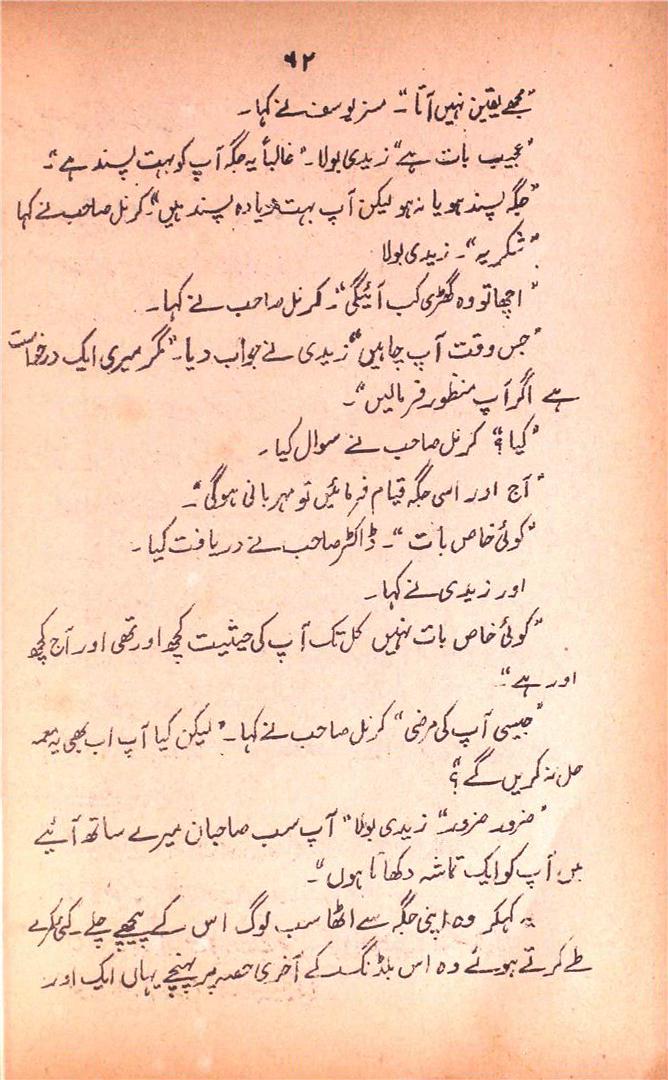 ۶۲
"مجھے یقین نہیں آتا"۔ مسز یوسف نے کہا۔
"عجیب بات ہے" زیدی بولا۔ "غالباً یہ جگہ آپ کو بہت پسند ہے"۔
"جگہ پسند ہو یا نہ ہو لیکن آپ بہت زیادہ پسند ہیں"۔ کرنل صاحب نے کہا
"شکریہ"۔ زیدی بولا
"اچھا تو وہ گھڑی کب آئیگی"۔ کرنل صاحب نے کہا۔
"جس وقت آپ چاہیں" زیدی نے جواب دیا۔ "مگر میری ایک درخواست
ہے اگر آپ منظور فرمالیں"۔
"کیا؟" کرنل صاحب نے سوال کیا۔
"آج اور اسی جگہ قیام فرمائیں تو مہربانی ہوگی"۔
"کوئی خاص بات"۔ ڈاکٹر صاحب نے دریافت کیا۔
اور زیدی نے کہا۔
"کوئی خاص بات نہیں کل تک آپ کی حیثیت کچھ اور تھی اور آج کچھ
اور ہے"۔
"جیسی آپ کی مرضی" کرنل صاحب نے کہا۔ "لیکن کیا آپ اب بھی یہ معمہ
حل نہ کریں گے؟"
"ضرور ضرور" زیدی بولا "آپ سب صاحبان میرے ساتھ آئیے
میں آپ کو ایک تماشہ دکھاتا ہوں"۔
یہ کہکر وہ اپنی جگہ سے اٹھا سب لوگ اس کے پیچھے چلے۔ کئی کمرے
طے کرتے ہوئے وہ اس بلڈنگ کے آخری حصہ پر پہنچے یہاں ایک اور